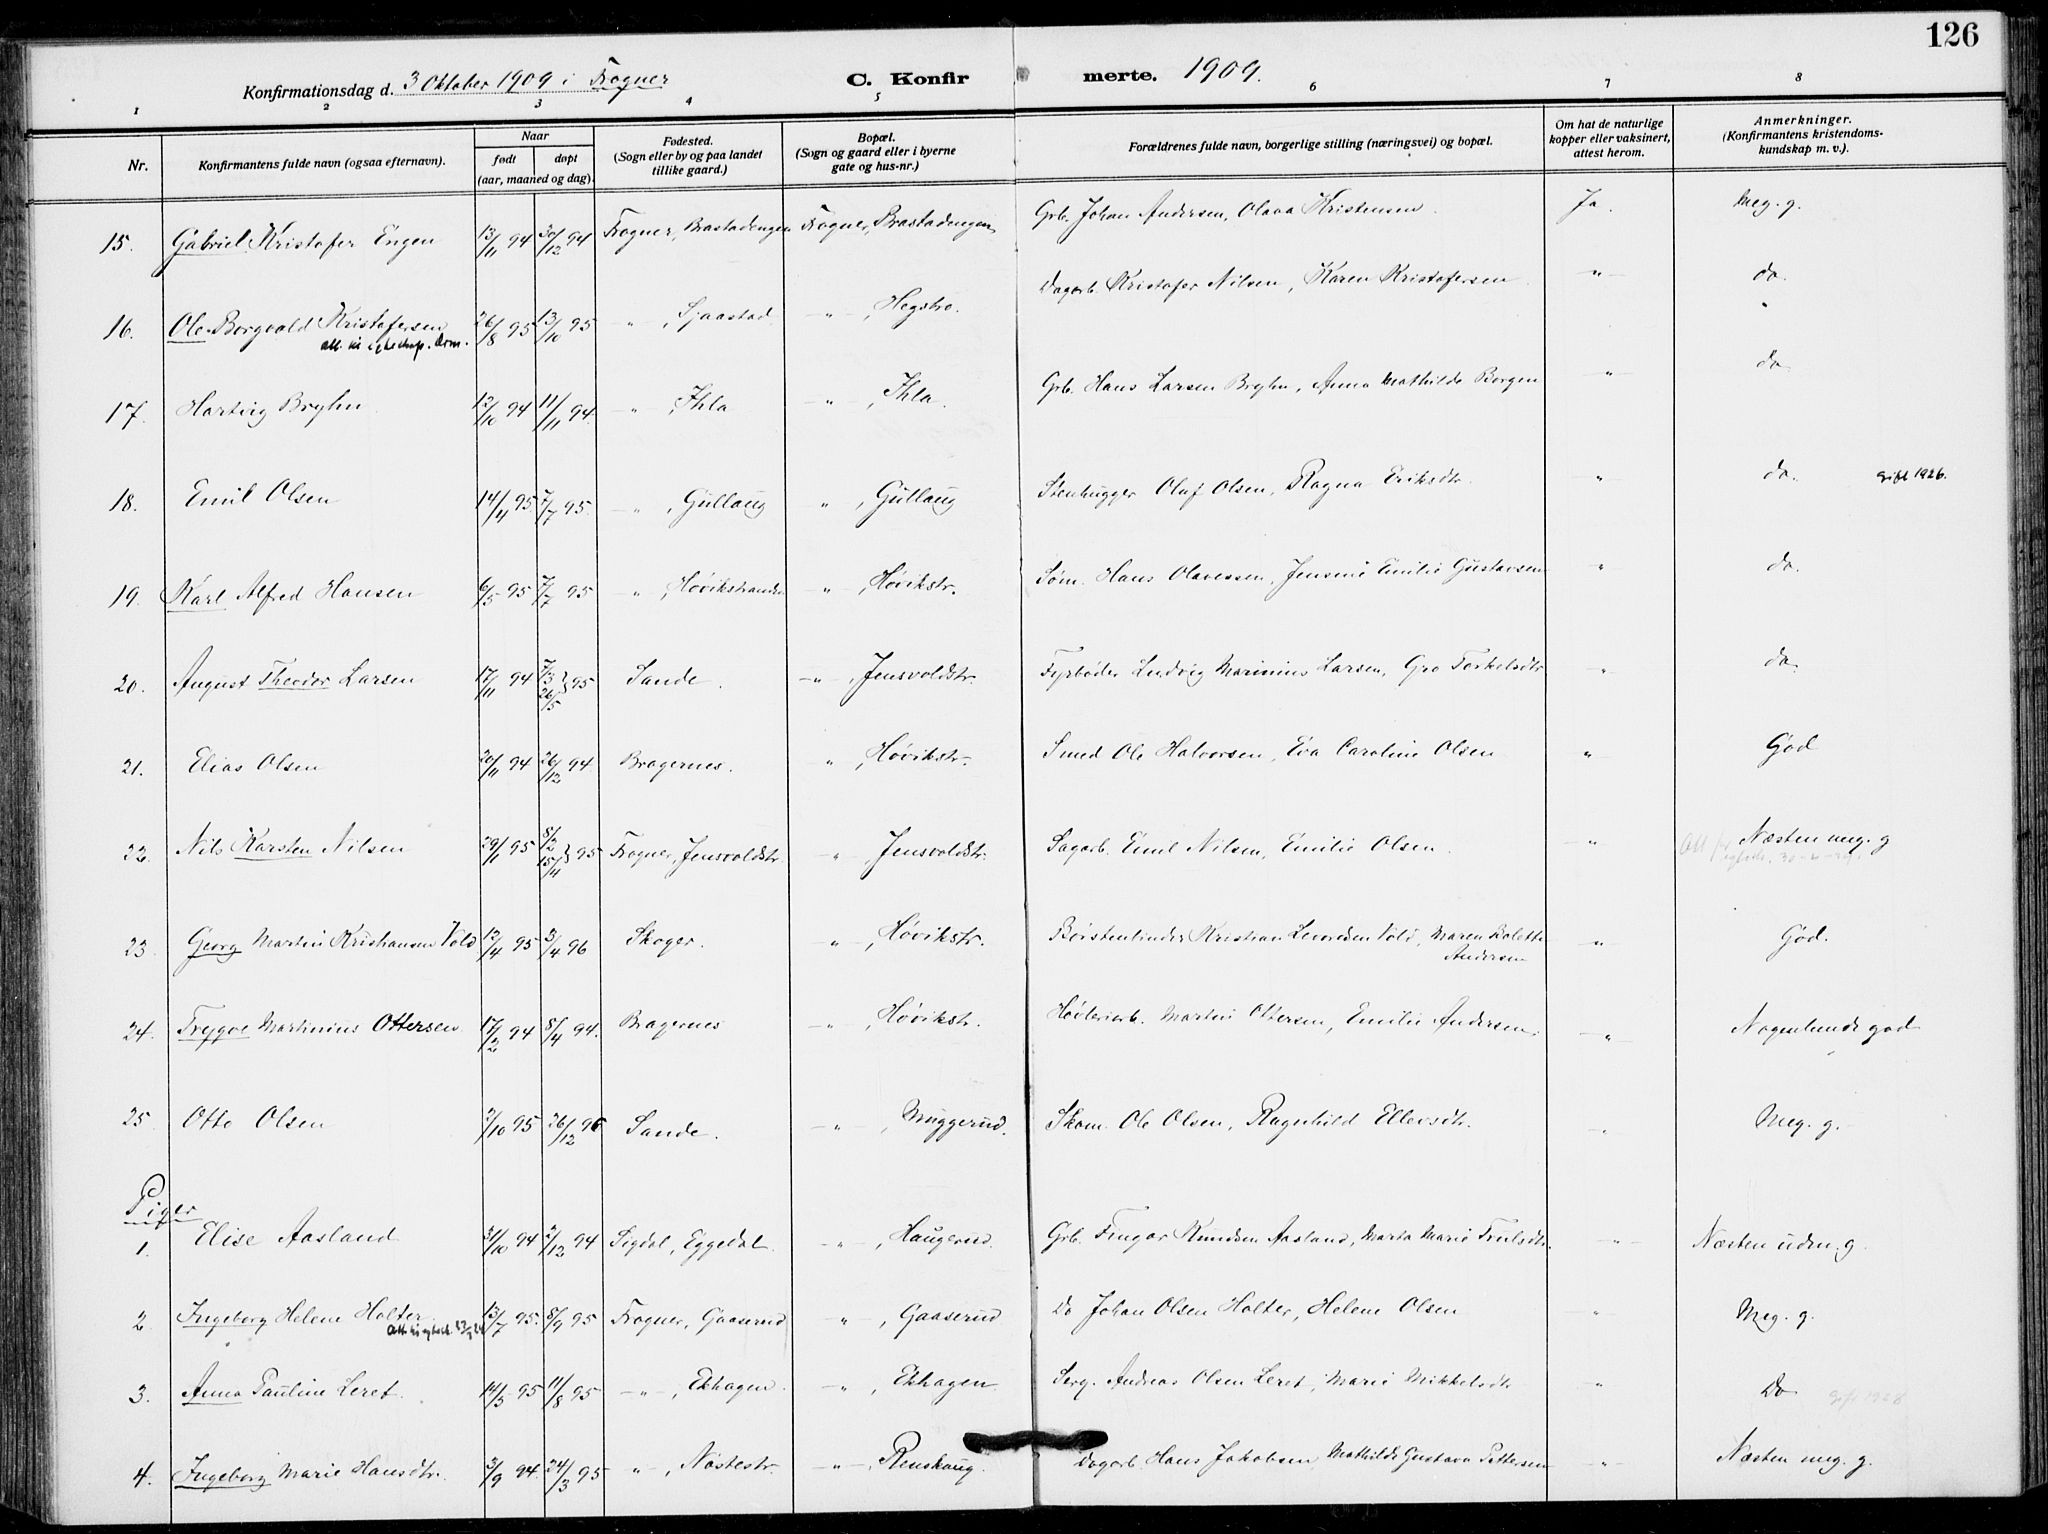 126
Konfirmationsdag d. 3 Oktober 1909 i Frogner C. Konfir merte. 1909.
1 2 3 4 5 6 7 8
Nr. Konfirmantens fulde navn (ogsaa efternavn). Naar født døpt (aar, maaned og dag). Fødested. (Sogn eller by og paa landet tillike gaard.) Bopæl. (Sogn og gaard eller i byerne gate og hus-nr.) Forældrenes fulde navn, borgerlige stilling (næringsvei) og bopæl. Om hat de naturlige kopper eller vaksinert, attest herom. Anmerkninger. (Konfirmantens kristendomskundskap m. v.).
15. Gabriel Kristofer Engen 13/11 94 30/12 94 Frogner, Brastadengen Frogner, Brastadengen Grb. Johan Andersen, Olava Kristensen. Ja. Meg. g.
16. Ole Borgvald Kristofersen 26/8 95 13/10 95 " , Sjaastad " , Hegstro. Dagarb. Kristofer Nilsen, Karen Kristofersen. " do.
17. Hartvig Bryhn 12/10 94 11/11 94 " , Ihla " , Ihla. Grb. Hans Larsen Bryhn, Anna Mathilde Borgen " do
18. Emil Olsen 14/4 95 7/7 95 " , Gullaug " , Gullaug Stenhugger Oluf Olsen, Ragna Eriksdtr. " do. Gift 1926.
19. Karl Alfred Hansen 6/5 95 7/7 95 " , Høvikstranden " , Høvikstr. Søm. Hans Olavessen, Jensine Emilie Gustavsen " do.
20. August Theodor Larsen 17/11 94 7/3 26/5 } 95 Sande. " , Jensvoldstr. Fyrbøder Ludvig Marinius Larsen, Gro Torkelsdtr. " do
21. Elias Olsen 20/11 94 26/12 94 Bragernes. " , Høvikstr. Smed Ole Halvorsen, Eva Caroline Olsen " God
22. Nils Karsten Nilsen 29/1 95 8/2 15/4 } 95 Frogner, Jensvoldstr. " , Jensvoldstr. Sagarb. Emil Nilsen, Emilie Olsen. " Næsten meg. g
23. Georg Martin Kristiansen Vold 12/4 95 3/4 96 Skoger. " , Høvikstr. Børstenbinder Kristian Vold, Maren Bolette Andersen " God.
24. Trygve Martinius Ottersen 17/2 94 8/4 94. Bragernes " , Høvikstr. Høvleriarb. Martin Ottersen, Emilie Andersen. " Nogenlunde god
25. Otto Olsen 2/10 95 26/12 96 Sande. " , Muggerud. Skom. Ole Olsen, Ragnhild Ellevsdtr. " Meg. g.
Piger
1. Elise Aasland 31/10 94 2/12 94 Sigdal, Eggedal " , Haugerud. Grb. Fingar Knudsen Aasland, Marta Marie Trulsdtr. " Næsten udm. g.
2. Ingeborg Helene Holter 13/7 95. 8/9 95 Frogner, Gaaserud " , Gaaserud Do Johan Olsen Holter, Helene Olsen " Meg. g.
3. Anna Pauline Leret. 14/5 95 11/8 95 " , Ekhagen. " , Ekhagen Serg. Andreas Olsen Leret, Marie Mikkelsdtr " Do Gift 1928
4. Ingeborg Marie Hansdtr. 3/9 94. 24/3 95 " , Nøstestr. " , Renskaug. Dagarb. Hans Jakobsen, Mathilde Gustava Pettersen " Næsten meg. g.